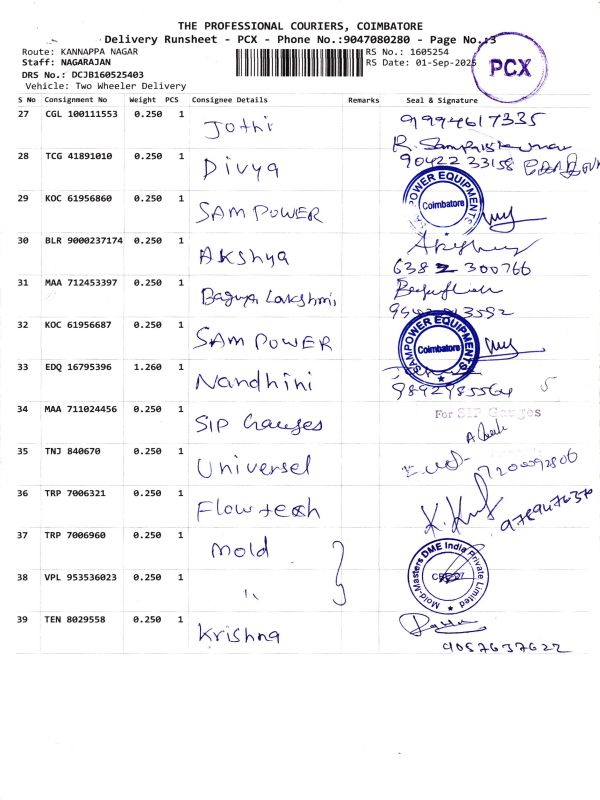 THE PROFESSIONAL COURIERS, COIMBATORE
Delivery Runsheet - PCX - Phone No.:9047080280 - Page No.:3
Route: KANNAPPA NAGAR
RS No.: 1605254
Staff: NAGARAJAN
RS Date: 01-Sep-2025
PCX
DRS No.: DCJB160525403
Vehicle: Two Wheeler Delivery
S No Consignment No Weight PCS Consignee Details Remarks Seal & Signature
27 CGL 100111553 0.250 1 Jothi 9994617335
28 TCG 41891010 0.250 1 Divya 90422 33158
29 KOC 61956860 0.250 1 SAM POWER SAMPOWER EQUIPMENTS Coimbatore
30 BLR 9000237174 0.250 1 Akshya 6382 300766
31 MAA 712453397 0.250 1 Bagya Lakshmi
32 KOC 61956687 0.250 1 SAM POWER SAMPOWER EQUIPMENTS Coimbatore
33 EDQ 16795396 1.260 1 Nandhini 9892985564
34 MAA 711024456 0.250 1 SIP Gauges For SIP Gauges
35 TNJ 840670 0.250 1 Universel
36 TRP 7006321 0.250 1 Flowtech
37 TRP 7006960 0.250 1 Mold Mold-Masters DME India Private Limited
38 VPL 953536023 0.250 1 "
39 TEN 8029558 0.250 1 Krishna 9057637622